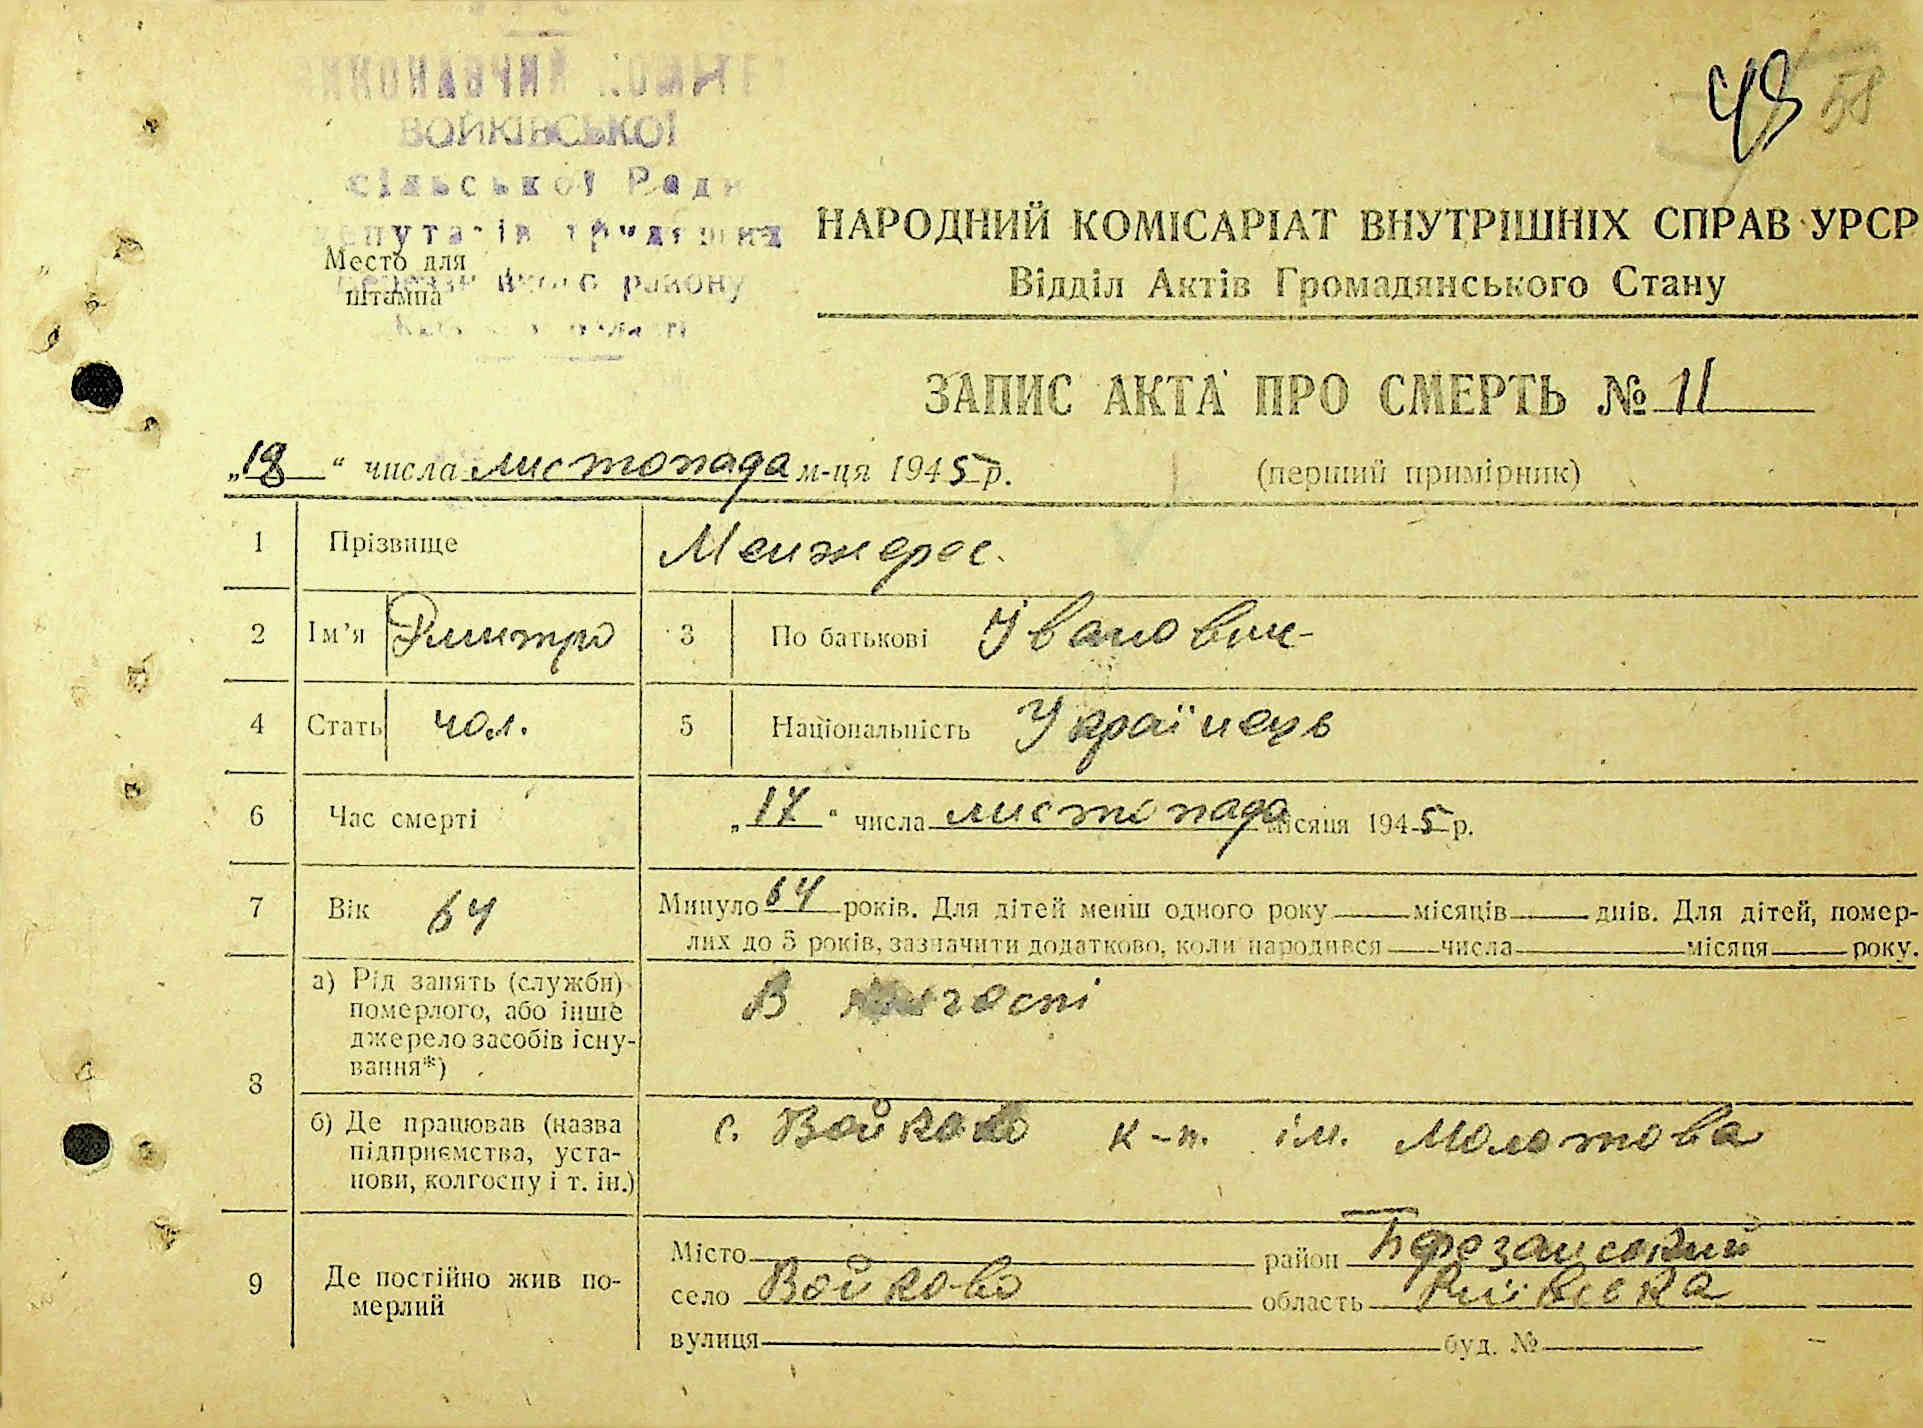 48 58
ВОЙКІВСЬКОЇ
сільської Ради
депутатів трудящих
району
області
Место для
штампа
НАРОДНИЙ КОМІСАРІАТ ВНУТРІШНІХ СПРАВ УРСР
Відділ Актів Громадянського Стану
ЗАПИС АКТА ПРО СМЕРТЬ № 11
„18“ числа листопада м-ця 1945 р.
(перший примірник)
1 Прізвище Менжерес.
2 Ім’я Дмитро 3 По батькові Іванович
4 Стать чол. 5 Національність Українець
6 Час смерті „17“ числа листопада місяця 1945 р.
7 Вік 64 Минуло 64 років. Для дітей менш одного року місяців днів. Для дітей, помер-
лих до 5 років, зазначити додатково, коли народився числа місяця року.
8 а) Рід занять (служби) В
померлого, або інше
джерело засобів існу-
вання*)
б) Де працював (назва с. Войково к-п. ім. Молотова
підприємства, уста-
нови, колгоспу і т. ін.)
9 Де постійно жив по-
мерлий
Місто район Березанський
село Войково область Київська
вулиця буд. № –